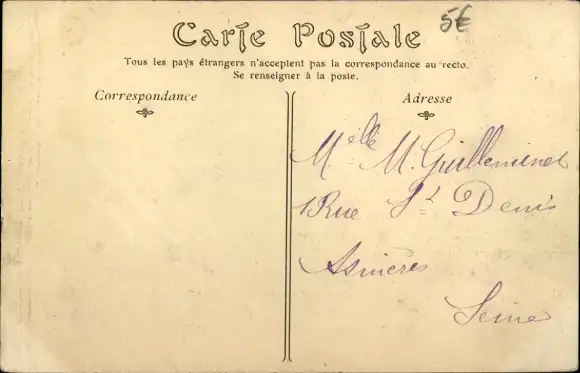 5€
Carte Postale
Tous les pays étrangers n'acceptent pas la correspondance au recto.
Se renseigner à la poste.
Correspondance
Adresse
Melle M. Guilleminet
1 Rue St Denis
Asnières
Seine